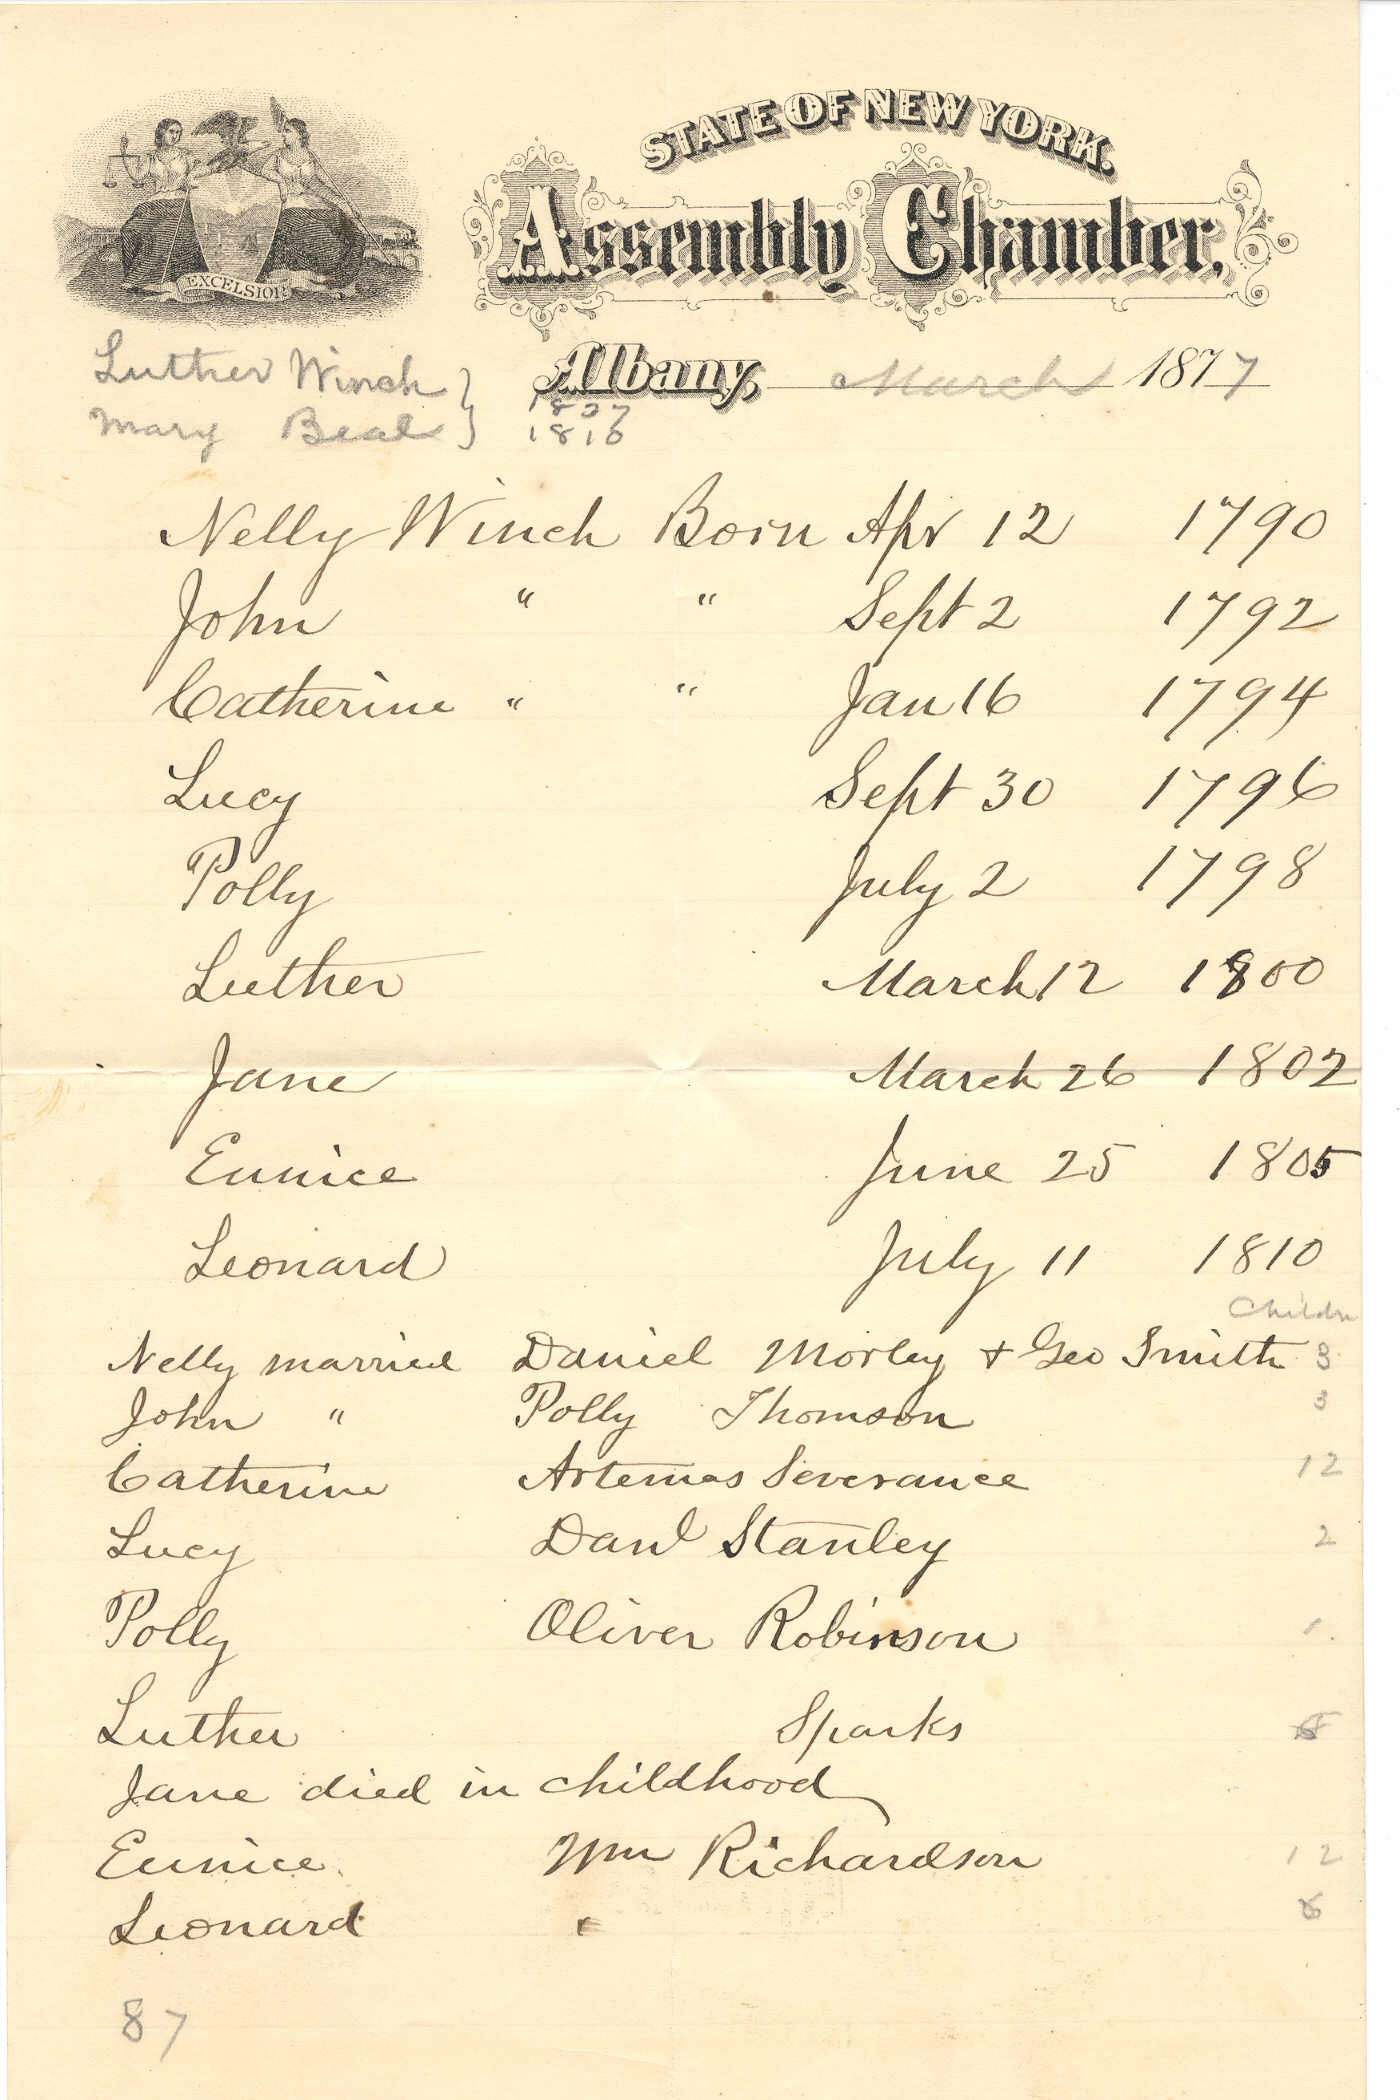 STATE OF NEW YORK.
Assembly Chamber,
EXCELSIOR
Albany, March 1877
Luther Winch } 1827
Mary Beal } 1816
Nelly Winch Born Apr 12 1790
John " " Sept 2 1792
Catherine " " Jan 16 1794
Lucy Sept 30 1796
Polly July 2 1798
Luther March 12 1800
Jane March 26 1802
Eunice June 25 1805
Leonard July 11 1810
Childn
Nelly married Daniel Morley + Geo Smith 3
John " Polly Thomson 3
Catherine Artemas Severance 12
Lucy Danl Stanley 2
Polly Oliver Robinson 1
Luther Sparks
Jane died in childhood
Eunice Wm Richardson 12
Leonard
87